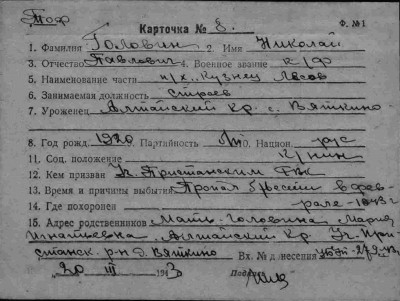 Тоф
Карточка № 8. Ф. № 1
1. Фамилия Головин 2. Имя Николай
3. Отчество Павлович 4. Военное звание к/ф
5. Наименование части
6. Занимаемая должность строев
7. Уроженец Алтайский кр. с. Вяткино
8. Год рожд. 1920 9. Партийность 10. Национ. рус
11. Соц. положение
12. Кем призван Уч. Пристанским РВК
13. Время и причины выбытия Пропал б/вести в фев-
14. Где похоронен рале - 1943 г
15. Адрес родственников Мать - Головина Мария
Игнатьевна, Алтайский кр. Уч. При-
станск. р-н д. Вяткино Вх. № донесения
„30“ III 1943 Подпись